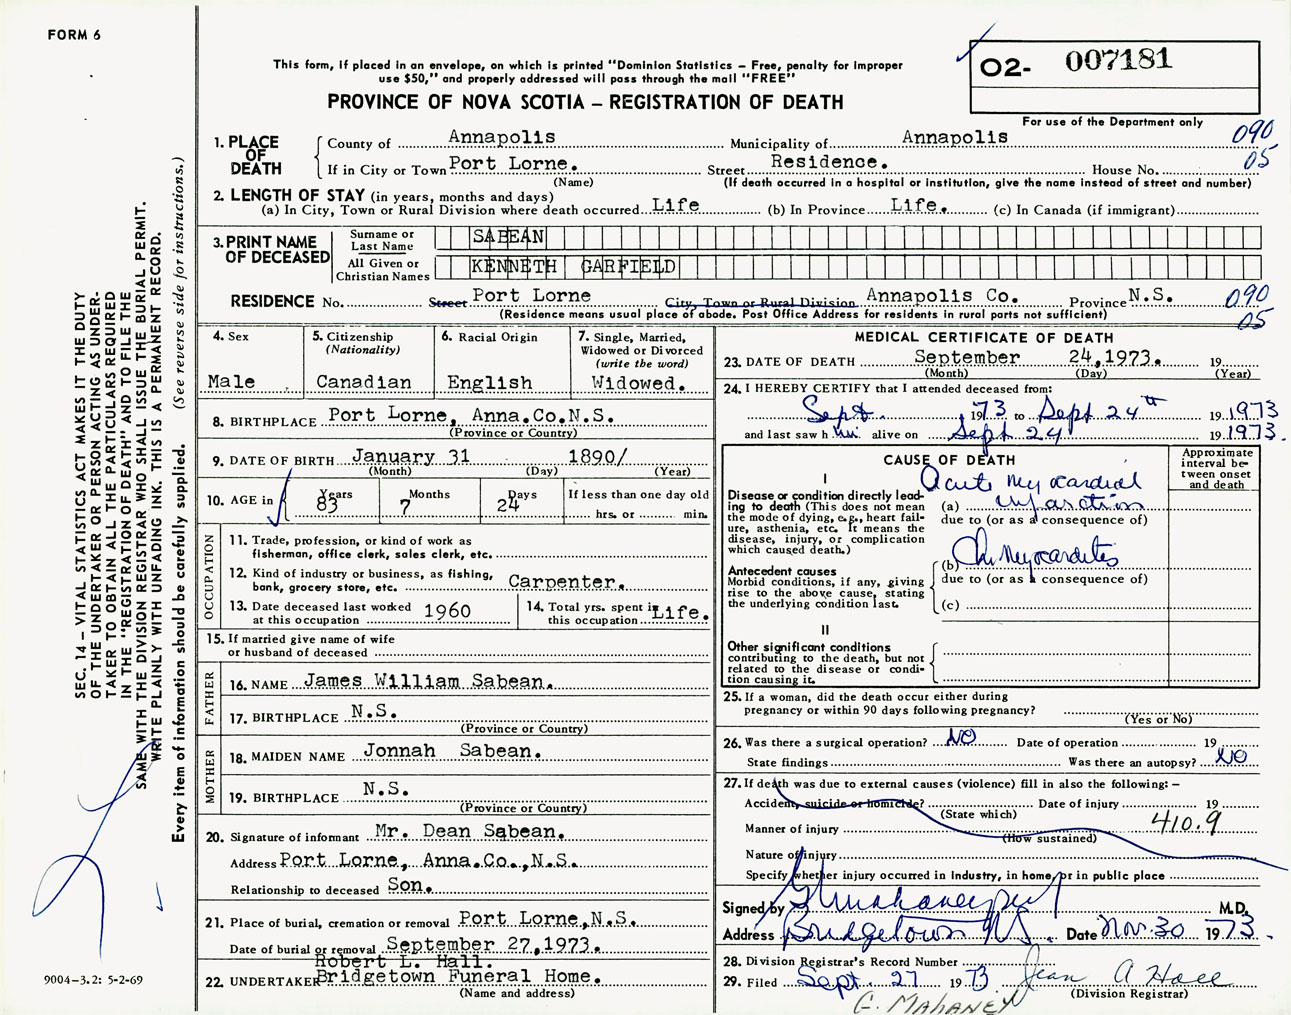 FORM 6
This form, if placed in an envelope, on which is printed "Dominion Statistics – Free, penalty for improper
use $50," and properly addressed will pass through the mail "FREE"
O2- 007181
PROVINCE OF NOVA SCOTIA – REGISTRATION OF DEATH
For use of the Department only
1. PLACE OF DEATH
County of Annapolis Municipality of Annapolis 090
If in City or Town Port Lorne. Street Residence. House No. 05
(Name) (If death occurred in a hospital or institution, give the name instead of street and number)
2. LENGTH OF STAY (in years, months and days)
(a) In City, Town or Rural Division where death occurred Life (b) In Province Life. (c) In Canada (if immigrant)
3. PRINT NAME OF DECEASED
Surname or Last Name SABEAN
All Given or Christian Names KENNETH GARFIELD
RESIDENCE No. Street Port Lorne City, Town or Rural Division Annapolis Co. Province N.S. 090
(Residence means usual place of abode. Post Office Address for residents in rural parts not sufficient) 05
4. Sex
Male
5. Citizenship
(Nationality)
Canadian
6. Racial Origin
English
7. Single, Married,
Widowed or Divorced
(write the word)
Widowed.
8. BIRTHPLACE Port Lorne, Anna.Co.N.S.
(Province or Country)
9. DATE OF BIRTH January 31 1890/
(Month) (Day) (Year)
10. AGE in Years Months Days If less than one day old
83 7 24 hrs. or min.
OCCUPATION
11. Trade, profession, or kind of work as
fisherman, office clerk, sales clerk, etc.
12. Kind of industry or business, as fishing,
bank, grocery store, etc. Carpenter.
13. Date deceased last worked
at this occupation 1960
14. Total yrs. spent in
this occupation Life.
15. If married give name of wife
or husband of deceased
FATHER
16. NAME James William Sabean.
17. BIRTHPLACE N.S.
(Province or Country)
MOTHER
18. MAIDEN NAME Jonnah Sabean.
19. BIRTHPLACE N.S.
(Province or Country)
20. Signature of informant Mr. Dean Sabean.
Address Port Lorne, Anna.Co.,N.S.
Relationship to deceased Son.
21. Place of burial, cremation or removal Port Lorne,N.S.
Date of burial or removal September 27,1973.
Robert L. Hall.
22. UNDERTAKER Bridgetown Funeral Home.
(Name and address)
MEDICAL CERTIFICATE OF DEATH
23. DATE OF DEATH September 24,1973. 19
(Month) (Day) (Year)
24. I HEREBY CERTIFY that I attended deceased from:
Sept. 1973 to Sept 24th 19 1973
and last saw him alive on Sept 24 19 1973.
CAUSE OF DEATH
Approximate
interval be-
tween onset
and death
I
Disease or condition directly lead-
ing to death (This does not mean
the mode of dying, e.g., heart fail-
ure, asthenia, etc. It means the
disease, injury, or complication
which caused death.)
Acute Myocardial
(a) infarction
due to (or as a consequence of)
Antecedent causes
Morbid conditions, if any, giving
rise to the above cause, stating
the underlying condition last.
(b) Ch. Myocarditis
due to (or as a consequence of)
(c)
II
Other significant conditions
contributing to the death, but not
related to the disease or condi-
tion causing it.
25. If a woman, did the death occur either during
pregnancy or within 90 days following pregnancy?
(Yes or No)
26. Was there a surgical operation? NO Date of operation 19
State findings Was there an autopsy? NO
27. If death was due to external causes (violence) fill in also the following: –
Accident, suicide or homicide? Date of injury 19
(State which)
Manner of injury 410.9
(How sustained)
Nature of injury
Specify whether injury occurred in industry, in home, or in public place
Signed by M.D.
Address Bridgetown NS. Date Nov. 30 1973.
28. Division Registrar's Record Number
29. Filed Sept. 27 1973 Jean A Hall
(Division Registrar)
G. MAHANEY
SEC. 14 – VITAL STATISTICS ACT MAKES IT THE DUTY
OF THE UNDERTAKER OR PERSON ACTING AS UNDER-
TAKER TO OBTAIN ALL THE PARTICULARS REQUIRED
IN THE "REGISTRATION OF DEATH" AND TO FILE THE
SAME WITH THE DIVISION REGISTRAR WHO SHALL ISSUE THE BURIAL PERMIT.
WRITE PLAINLY WITH UNFADING INK. THIS IS A PERMANENT RECORD.
Every item of information should be carefully supplied. (See reverse side for instructions.)
9004-3.2: 5-2-69